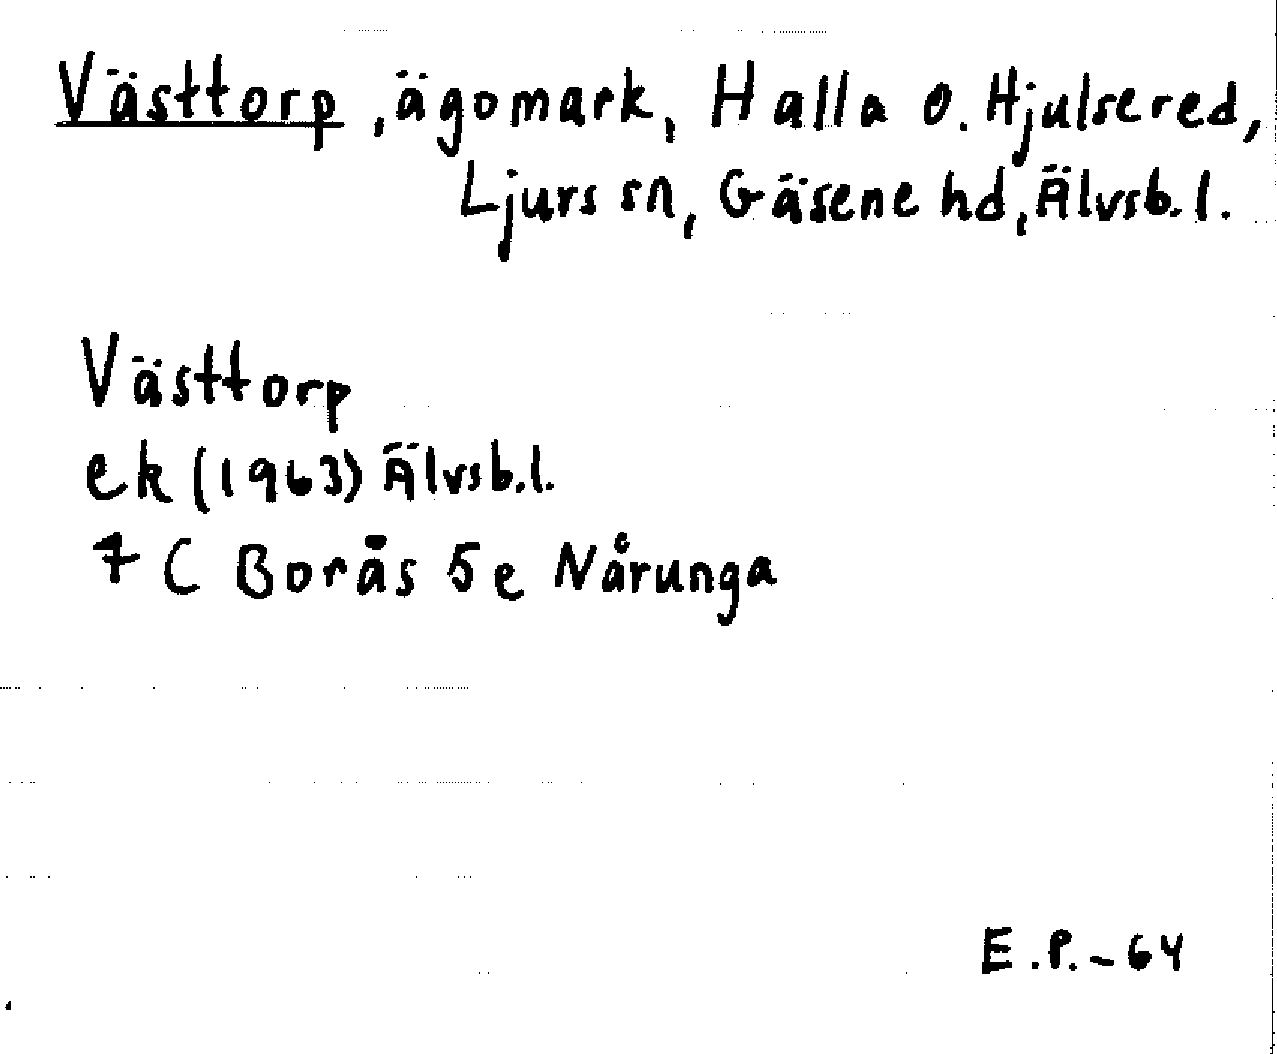 Västtorp, ägomark, Halla o. Hjulsered,
Ljurs sn, Gäsene hd, Älvsb. l.
Västtorp
ek (1963) Älvsb. l.
7 C Borås 5 e Nårunga
E.P. - 64